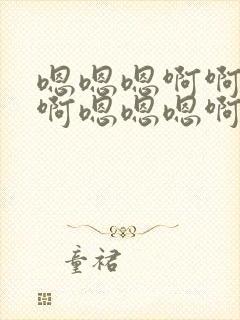 嗯嗯嗯啊啊
啊嗯嗯嗯啊
童裙